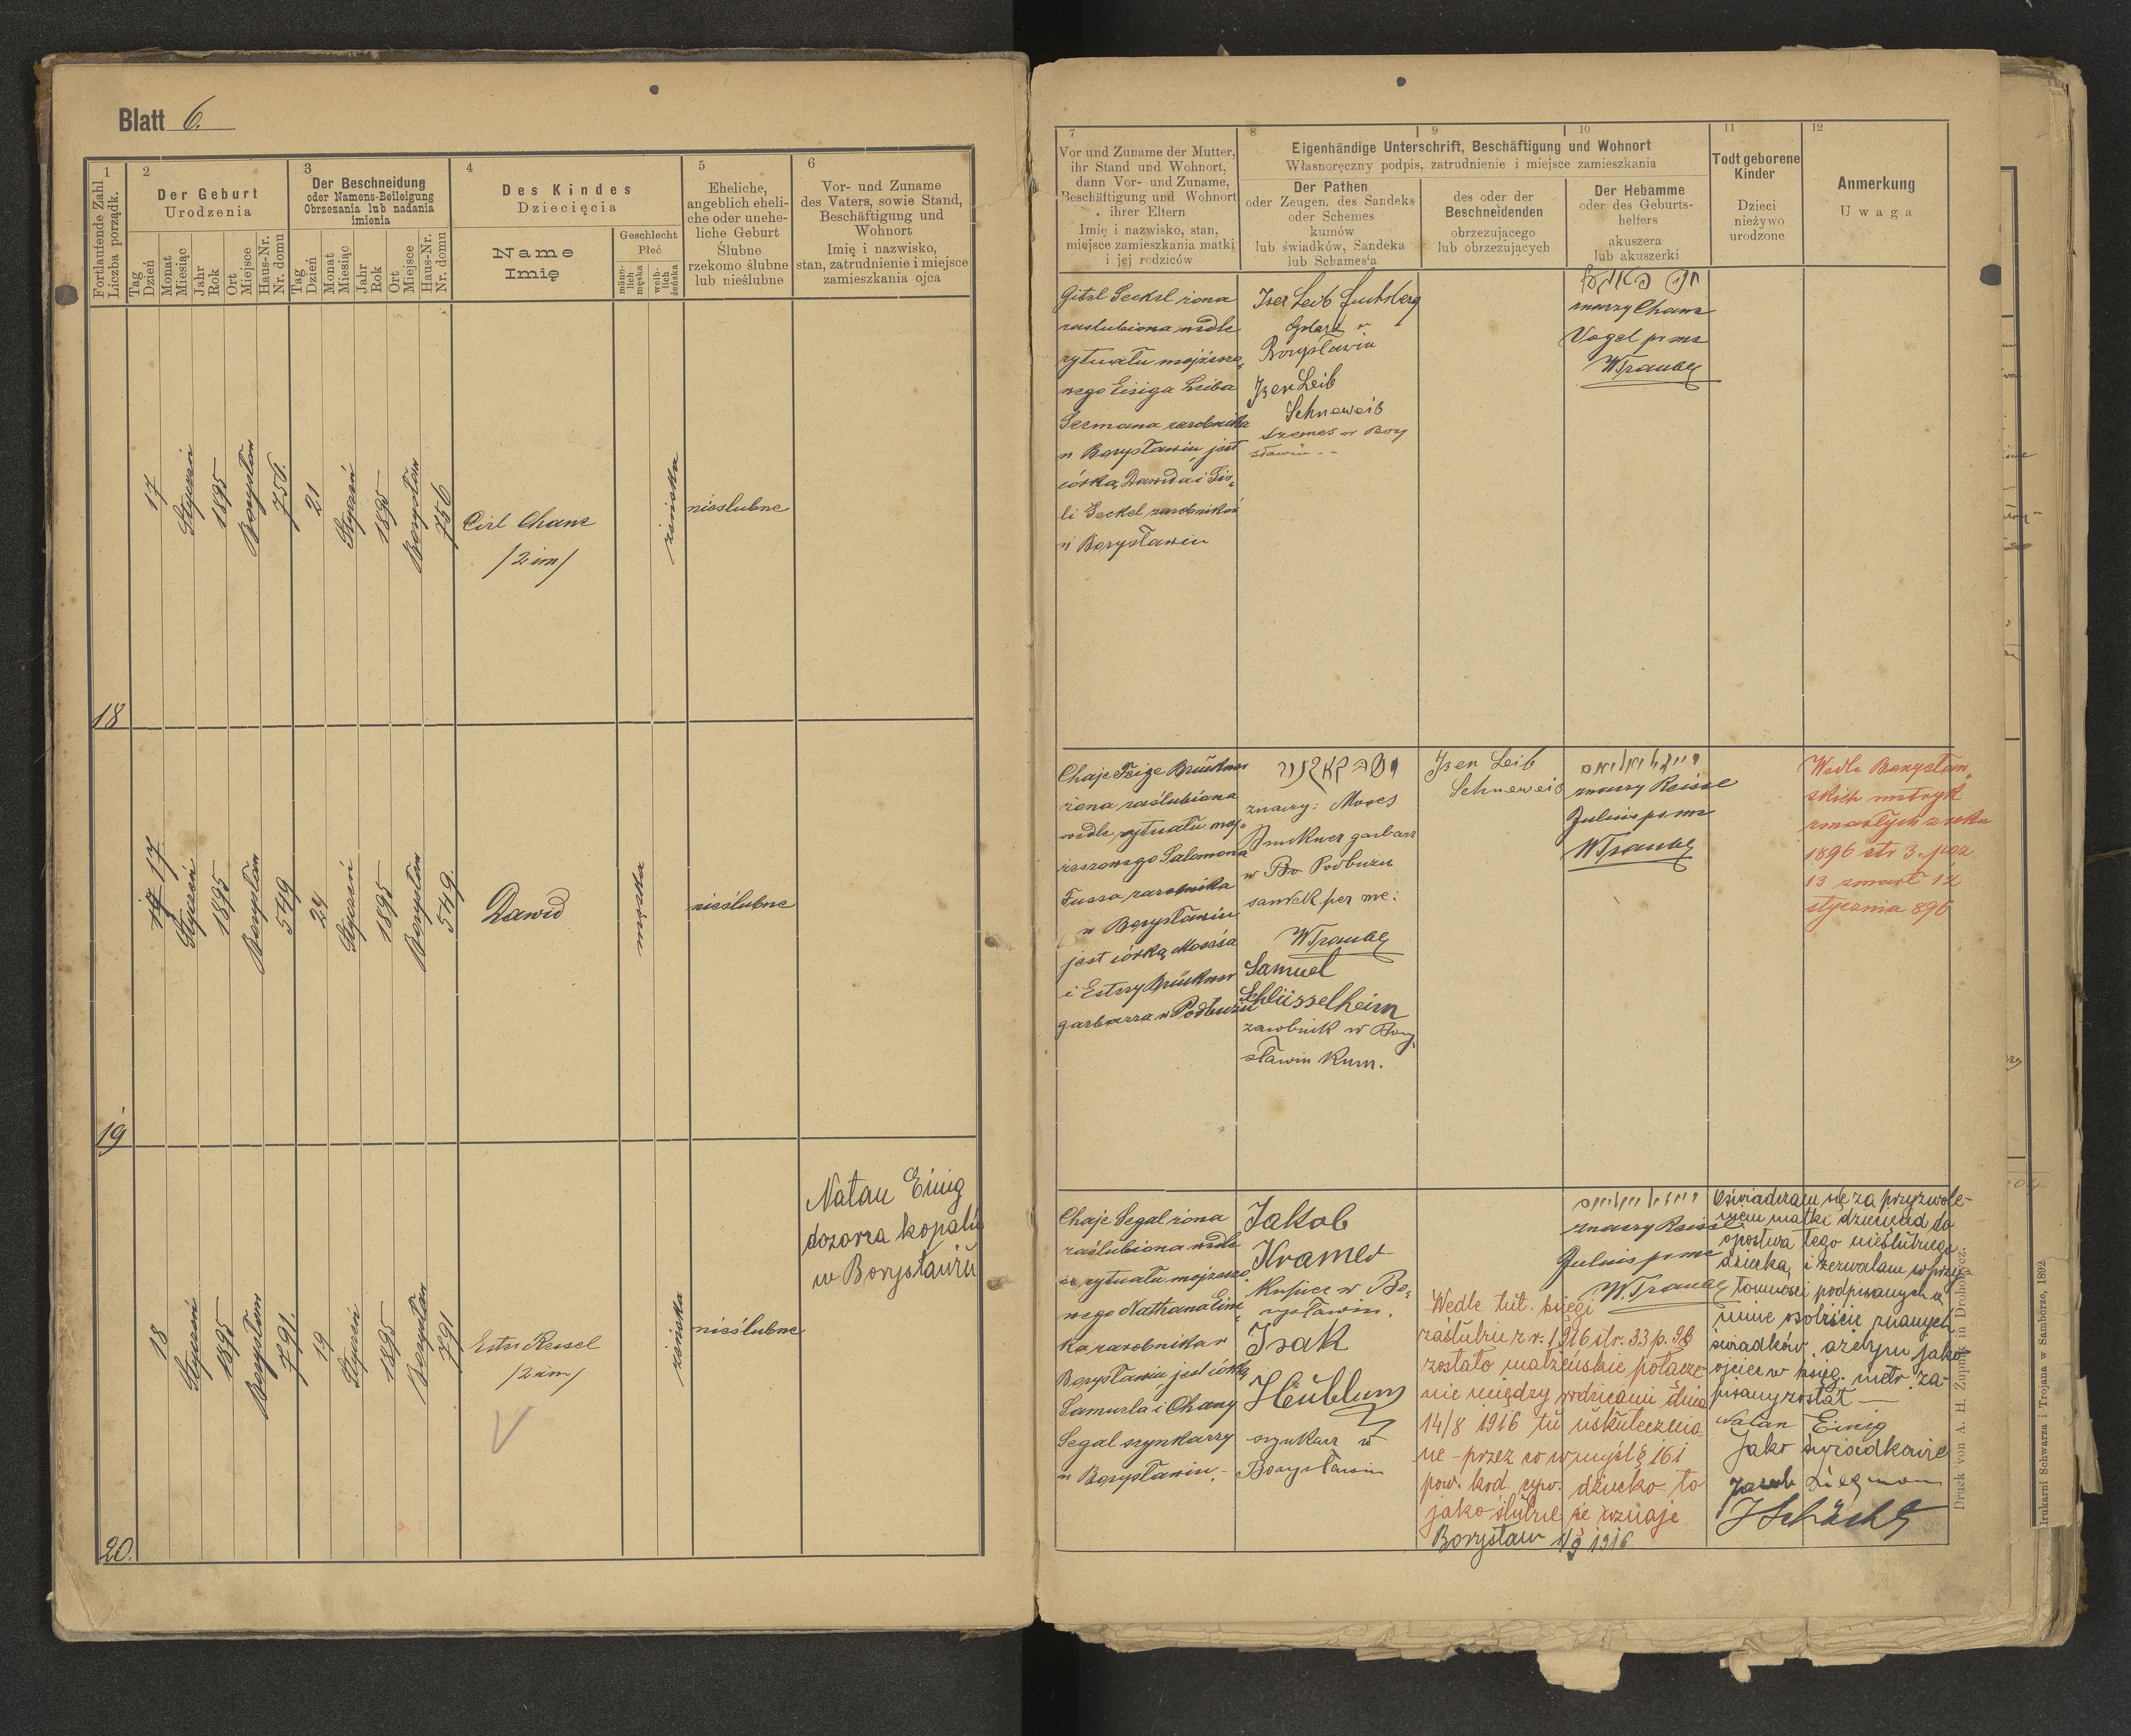 Blatt 6.
1
2
3
4
5
6
Fortlaufende Zahl
Liczba porządk.
Der Geburt
Urodzenia
Der Beschneidung
oder Namens-Beileigung
Obrzezania lub nadania
imienia
Des Kindes
Dziecięcia
Eheliche,
angeblich eheli-
che oder unehe-
liche Geburt
Ślubne
rzekomo ślubne
lub nieślubne
Vor- und Zuname
des Vaters, sowie Stand,
Beschäftigung und
Wohnort
Imię i nazwisko,
stan, zatrudnienie i miejsce
zamieszkania ojca
Tag
Dzień
Monat
Miesiąc
Jahr
Rok
Ort
Miejsce
Haus-Nr.
Nr. domu
Tag
Dzień
Monat
Miesiąc
Jahr
Rok
Ort
Miejsce
Haus-Nr.
Nr. domu
Name
Imię
Geschlecht
Płeć
männ-
lich
męska
weib-
lich
żeńska
18
17
Styczeń
1895
Borysław
756.
21
Styczeń
1895
Borysław
756
Cirl Chane
/2 im/
żeńska
nieslubne
19
17
Styczeń
1895
Borysław
549
24
Styczeń
1895
Borysław
549.
Dawid
męska
nieślubne
20.
18
Styczeń
1895
Borysław
791.
19
Styczeń
1895
Borysław
791
Ester Reisel
/2 im/
żeńska
nieślubne
Natan Einig
dozorca kopalń
w Borysławiu
7
8
9
10
11
12
Vor und Zuname der Mutter,
ihr Stand und Wohnort,
dann Vor- und Zuname,
Beschäftigung und Wohnort
ihrer Eltern
Imię i nazwisko, stan,
miejsce zamieszkania matki
i jej rodziców
Eigenhändige Unterschrift, Beschäftigung und Wohnort
Własnoręczny podpis, zatrudnienie i miejsce zamieszkania
Der Pathen
oder Zeugen, des Sandeks
oder Schemes
kumów
lub świadków, Sandeka
lub Schames'a
des oder der
Beschneidenden
obrzezującego
lub obrzezujących
Der Hebamme
oder des Geburts-
helfers
akuszera
lub akuszerki
Todt geborene
Kinder
Dzieci
nieżywo
urodzone
Anmerkung
Uwaga
żona
zaslubiona wedle
rytuału mojżeszo„
wego Eisiga Leiba
zarobnika
w Borysławiu, jest
córką Dawida i
zarobników
w Borysławiu
Iser Leib Fuchsberg
w
Borysławiu
Izer Leib
Schneweis
szames w Bory
sławiu --
znaczy Chane
Vogel pr me
WTraube
Chaje Feige Brückner
żona zaślubiona
wedle rytuału moj„
żeszowego Salomona
Fussa zarobnika
w Borysławiu
jest córką Mosesa
i Estery Brückner
garbarza w Podbużu
znaczy: Moses
Bruckner garbarz
w Bo Podbużu
sandek per me:
WTraube
Samuel
Schlüsselheim
zarobnik w Bory„
sławiu Kum.
Izer Leib
Schneweis
znaczy Reisel
Julius pr me
WTraube
Wedle Borysław„
skich metryk
zmarłych z roku
1896 str 3. poz
13 zmarł 12
stycznia 896
Chaje Segal żona
zaślubiona wedle
rytuału mojżeszo„
wego Nathana Eini„
ka zarobnika w
Borysławiu jest córką
Samuela i Chany
Segal szynkarzy
w Borysławiu.-
Jakob
Kramer
Kupiec w Bo„
rysławiu.
Isak
Heublum
szynkarz w
Borysławiu
znaczy Reisel
Julius pr me
W.Traube
Wedle tut. księgi
zaślubin z r. 1916 str. 33 p. 98
zostało małżeńskie połącze-
nie między rodzicami dnia
14/8 1916 tu uskutecznio
ne - przez co w myśl § 161
pow. kod. cyw. dziecko to
jako ślubne się uznaje
Borysław 1/9 1916
Oświadczam się za przyzwole-
niem matki dziecięcia do
ojcostwa tego nieślubnego
dziecka, i zezwalam w przy-
tomności podpisanych a
mnie osobiście znanych
świadków, ażebym jako
ojciec w księg. metr. za-
pisany został —
Natan Einig
Jako świadkowie
Druck von A. H. Zupnik in Drohobycz.
Drukarni Schwarza i Trojana w Samborze, 1892.